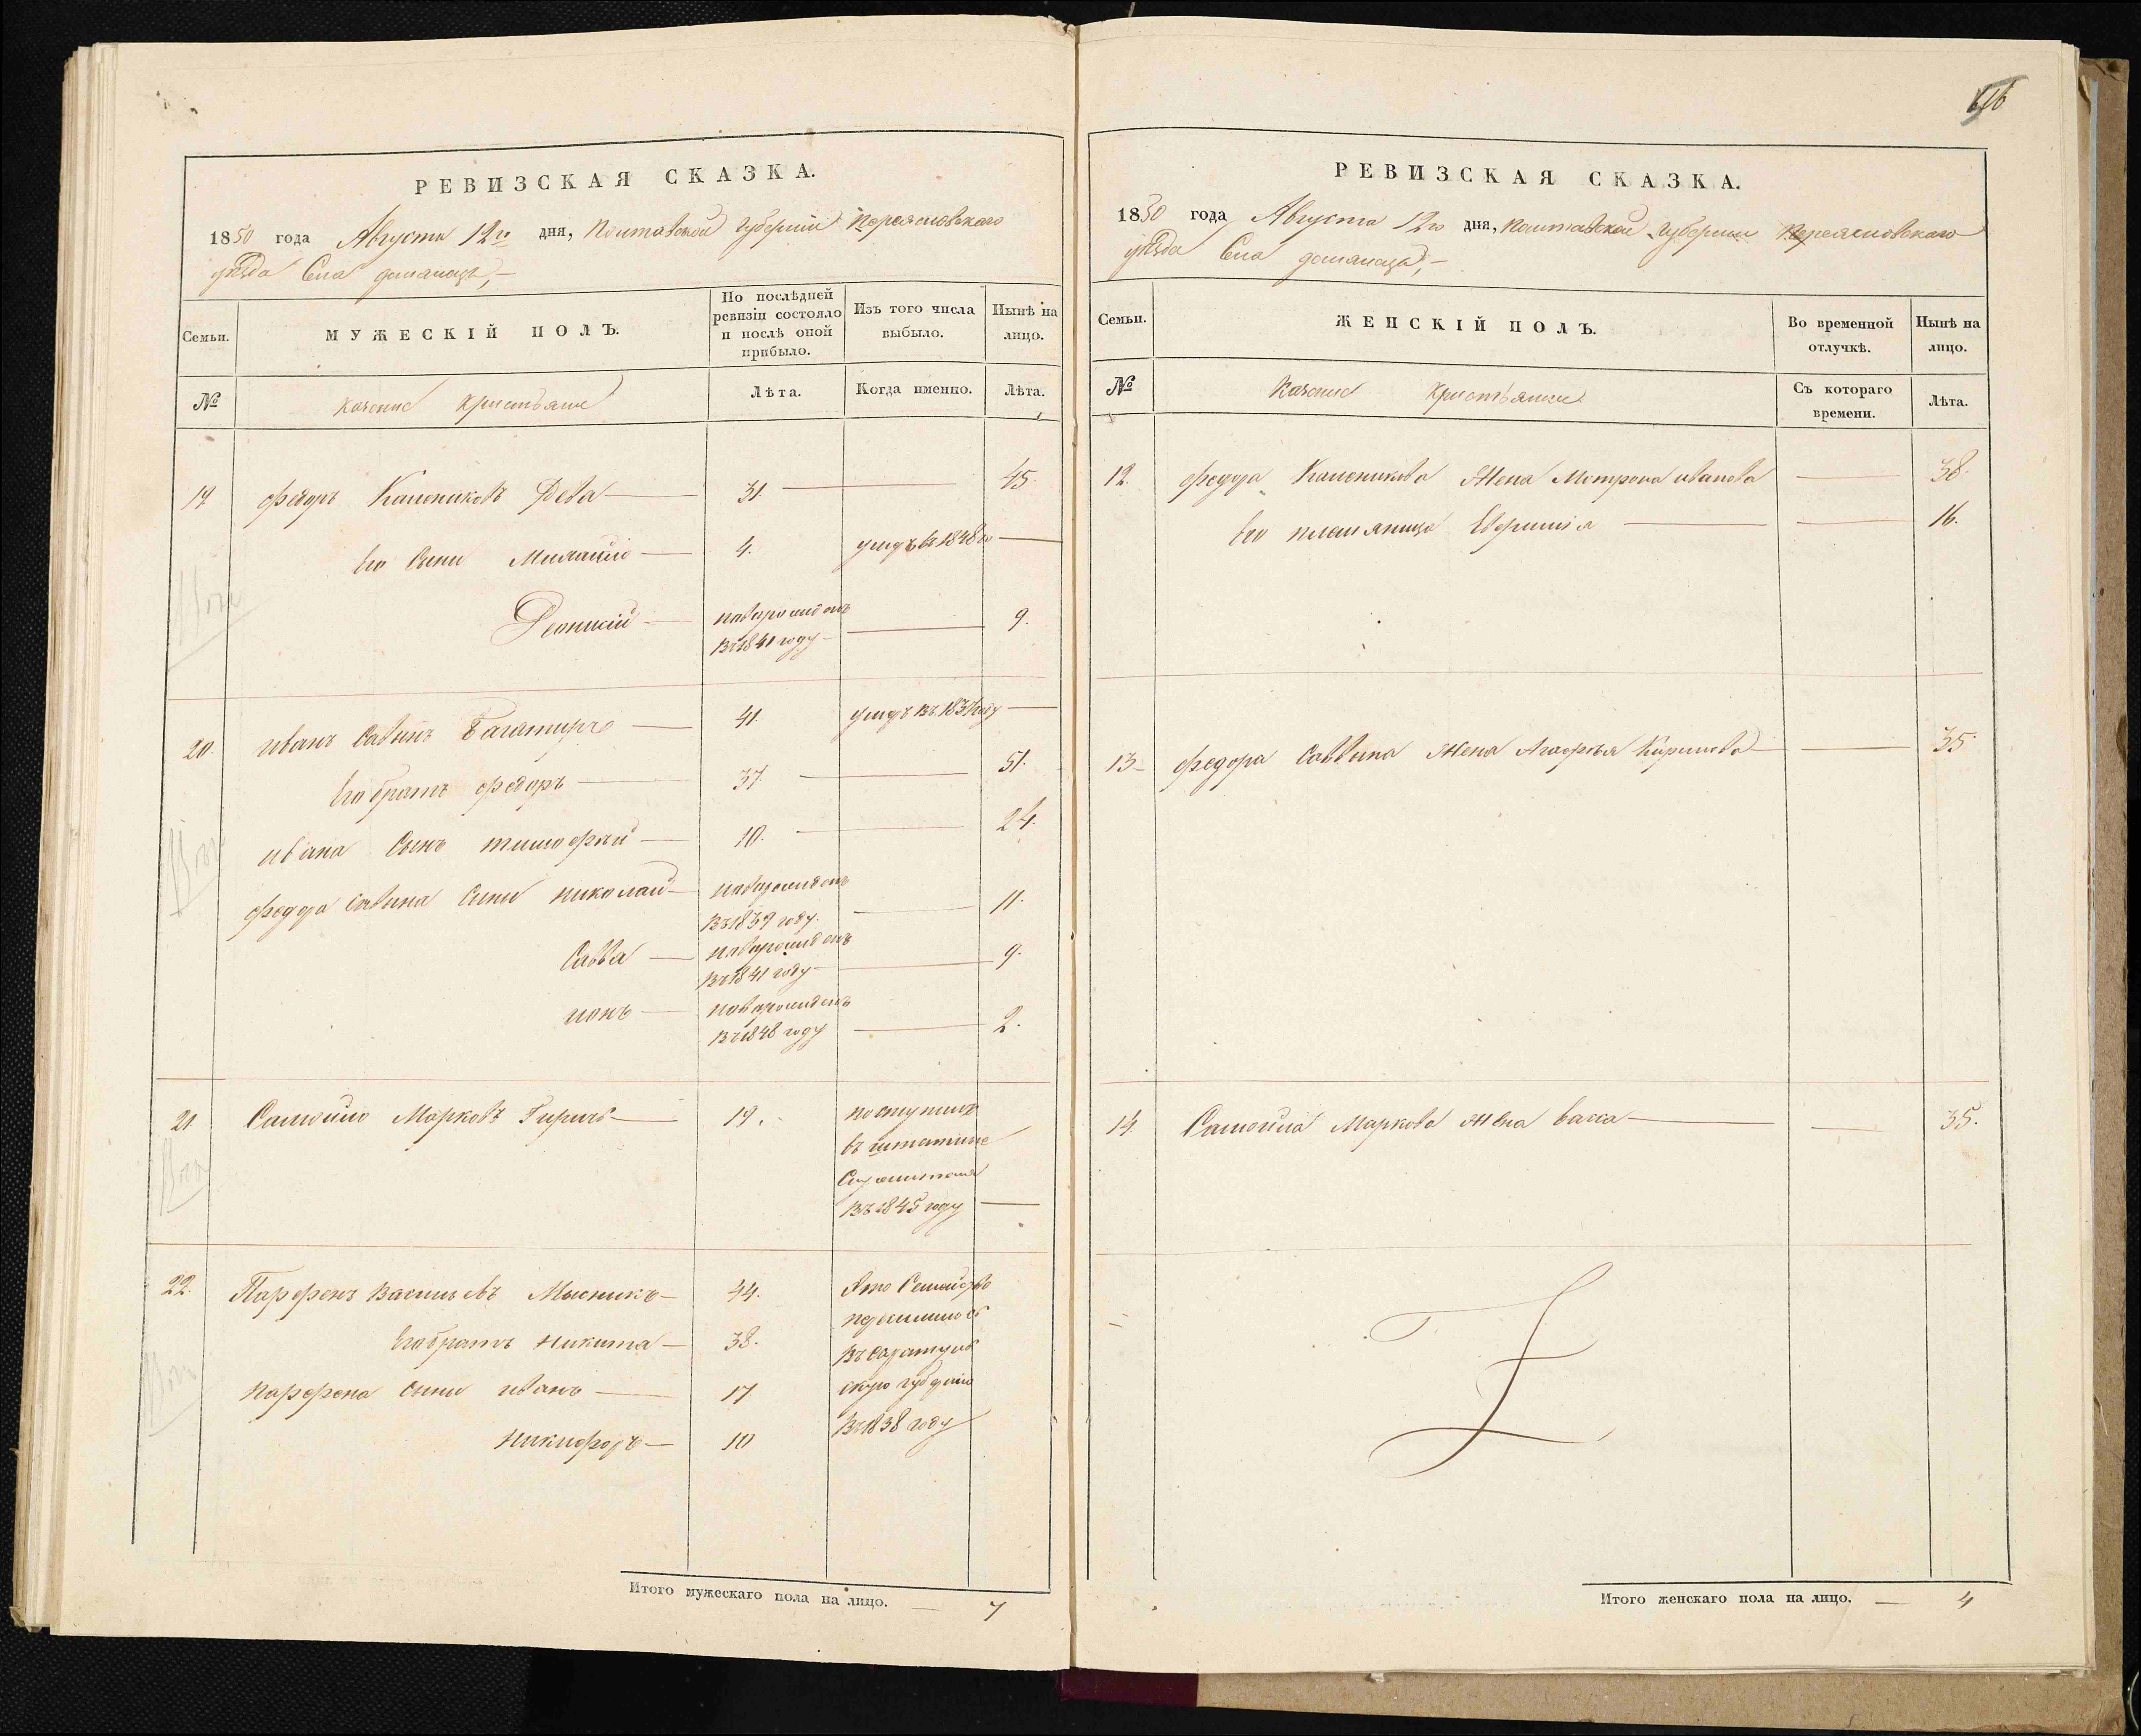 РЕВИЗСКАЯ СКАЗКА.
1850 года Августа 12го дня, Полтавской губернии Переясловскаго
уѣзда Села
Семьи.
МУЖЕСКІЙ ПОЛЪ.
По послѣдней
ревизіи состояло
и послѣ оной
прибыло.
Изъ того числа
выбыло.
Нынѣ на
лицо.
№
Казенне Кристьяне
Лѣта.
Когда именно.
Лѣта.
19 федоръ Калениковъ Дева 31. 45.
Его Сыни 4. умеръ въ 1848го
Деонисій новарожденъ
въ 1841 году 9.
20. иванъ Савинъ Багатиръ 41. умеръ въ 1837году
Его братъ федоръ 37. 51.
ивана Сынъ тимофѣй 10. 24.
федора Савина Сыни николай новарожденъ
въ 1839 году. 11.
Савва новарожденъ
въ 1841 году 9.
новарожденъ
въ 1848 году 2.
21 Самойло Марковъ 19. поступилъ
въ штатние
въ 1845 году
22. Парфенъ Васильевъ Мысникъ 44. Это Семейство
Его братъ Никита 38.
Парфена Сыни иванъ 17
Никифоръ 10 въ 1838 году
Итого мужескаго пола на лицо. 7
РЕВИЗСКАЯ СКАЗКА.
1850 года Августа 12го дня, Полтавской губернии Переясловскаго
уѣзда Села
Семьи.
ЖЕНСКІЙ ПОЛЪ.
Во временной
отлучкѣ.
Нынѣ на
лицо.
№
Казенне Кристьянки
Съ котораго
времени.
Лѣта.
12. федора Каленикова Жена Мотрона иванова 38.
Его племяница 16.
13 федора Саввина Жена Агафья Кирилова 35.
14. Самойла Маркова Жена васса 35.
Итого женскаго пола на лицо. 4